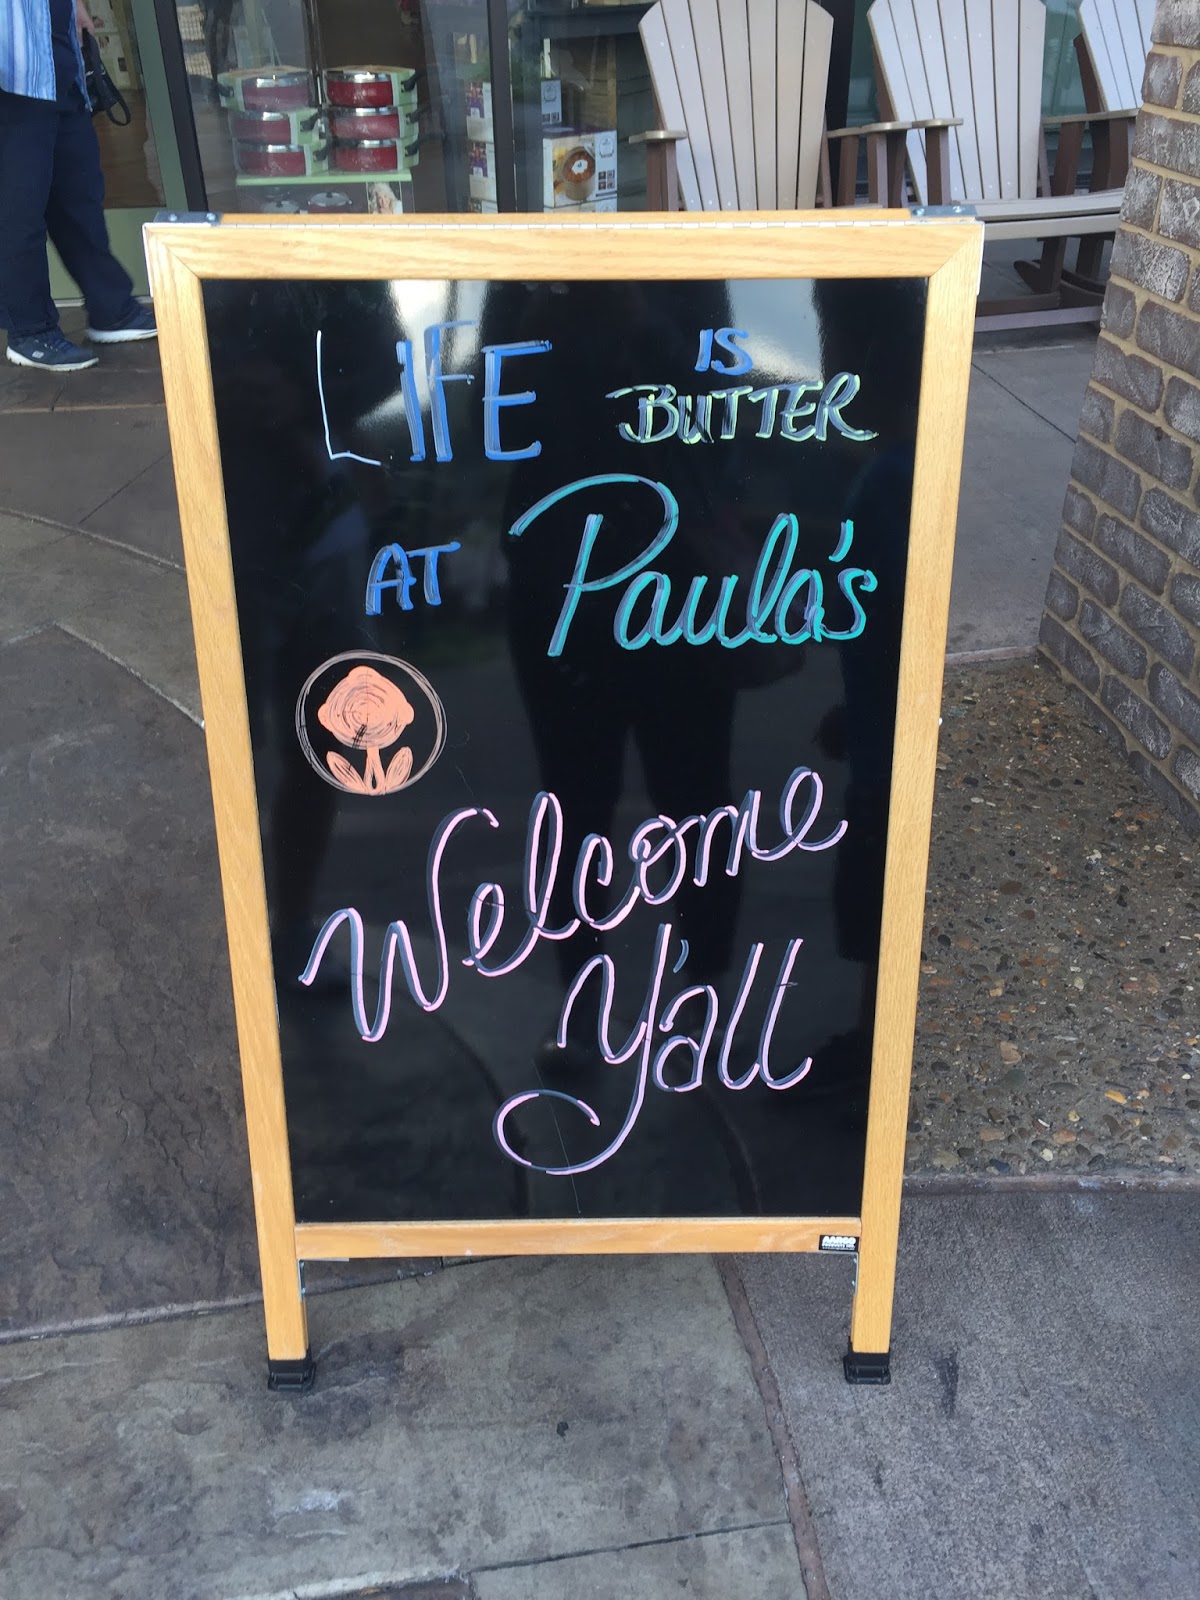 LIFE IS
BUTTER
AT Paula's
Welcome
Y'all
AARCO
PRODUCTS INC.